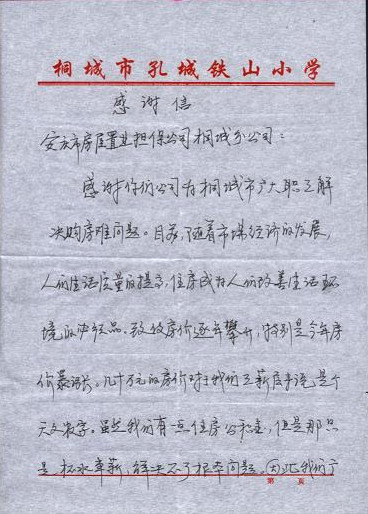 桐城市孔城铁山小学
感谢信
安庆市房屋置业担保公司桐城分公司：
感谢你们公司为桐城市广大职工解
决购房难问题。目前，随着市场经济的发展，
人们生活质量的提高，住房成为人们改善生活环
境的必须品，致使房价逐年攀升，特别是今年房
价暴涨。几十万元的房价对于我们工薪层来说是个
天文数字。虽然我们有一点住房公积金，但是那只
是杯水车薪，解决不了根本问题。因此我们广
第 页